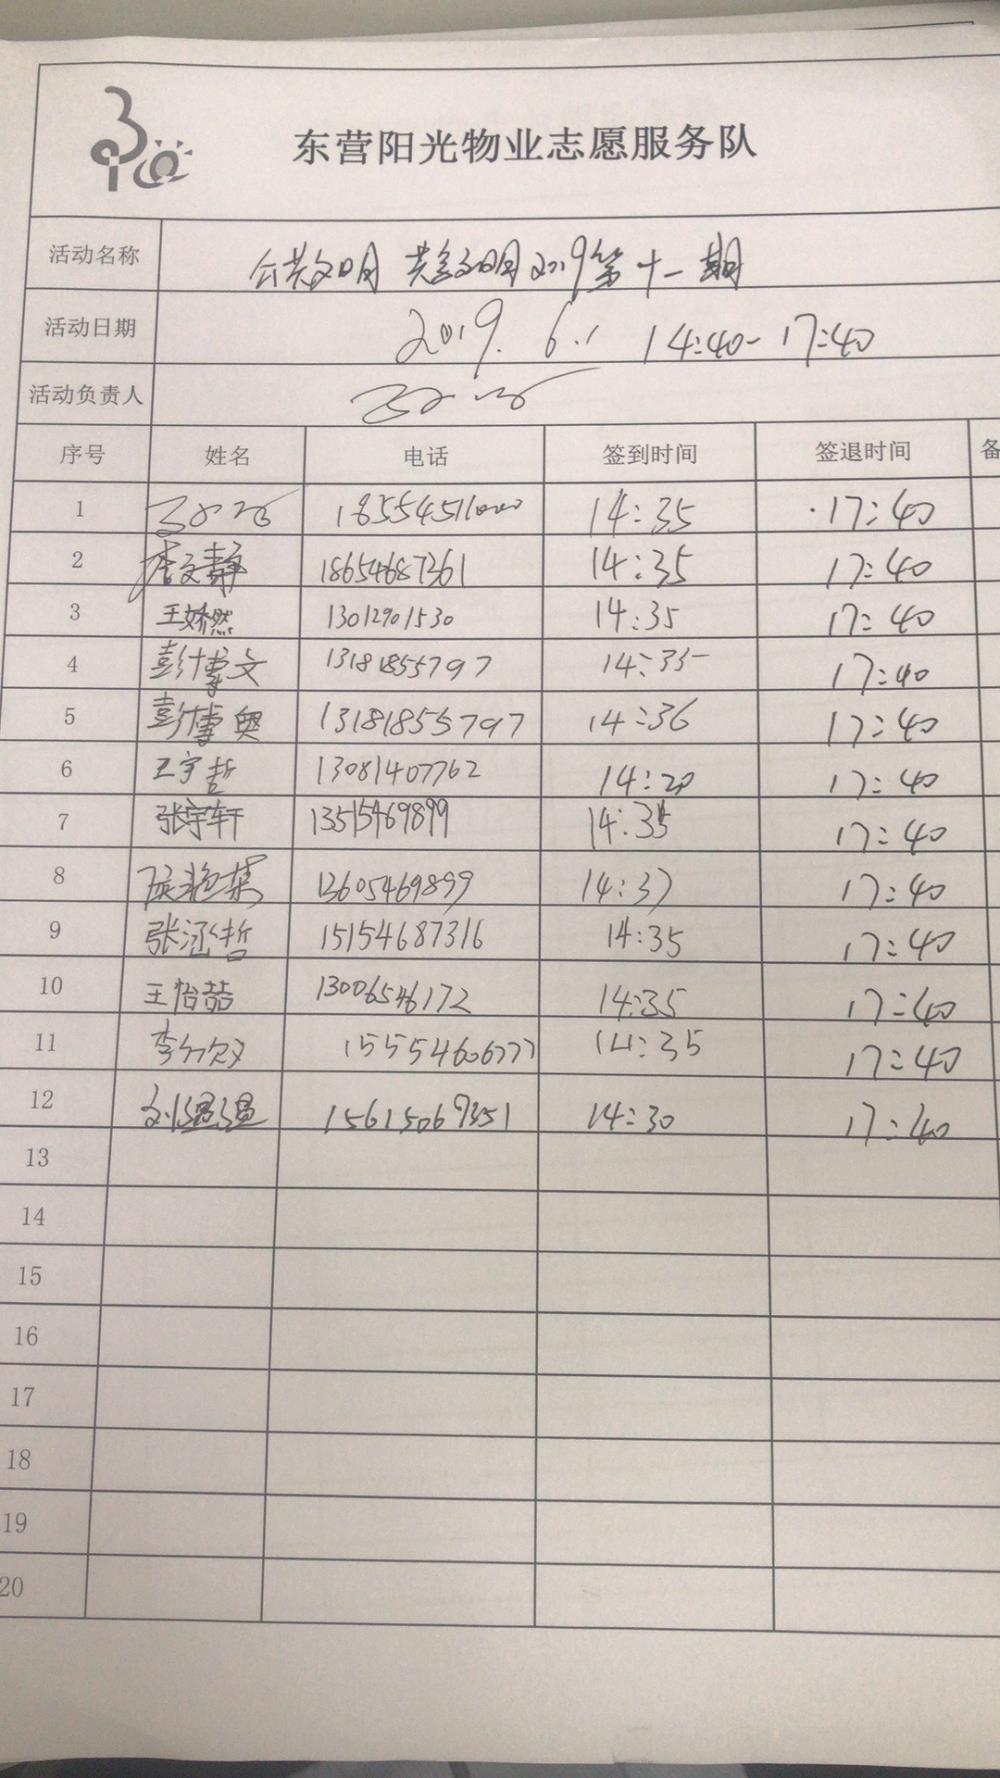 东营阳光物业志愿服务队
活动名称 公共文明 共享文明2019第十一期
活动日期 2019.6.1 14:40-17:40
活动负责人
序号 姓名 电话 签到时间 签退时间 备
1 14:35 17:40
2 李文静 18654687361 14:35 17:40
3 王娇然 13012901530 14:35 17:40
4 彭博文 13181855797 14:35 17:40
5 彭博奥 13181855797 14:36 17:40
6 王宇哲 13081407762 14:20 17:40
7 张宇轩 13515469899 14:35 17:40
8 13605469899 14:37 17:40
9 张涵哲 15154687316 14:35 17:40
10 王怡喆 13006546172 14:35 17:40
11 15554606777 14:35 17:40
12 刘温温 15615069351 14:30 17:40
13
14
15
16
17
18
19
20